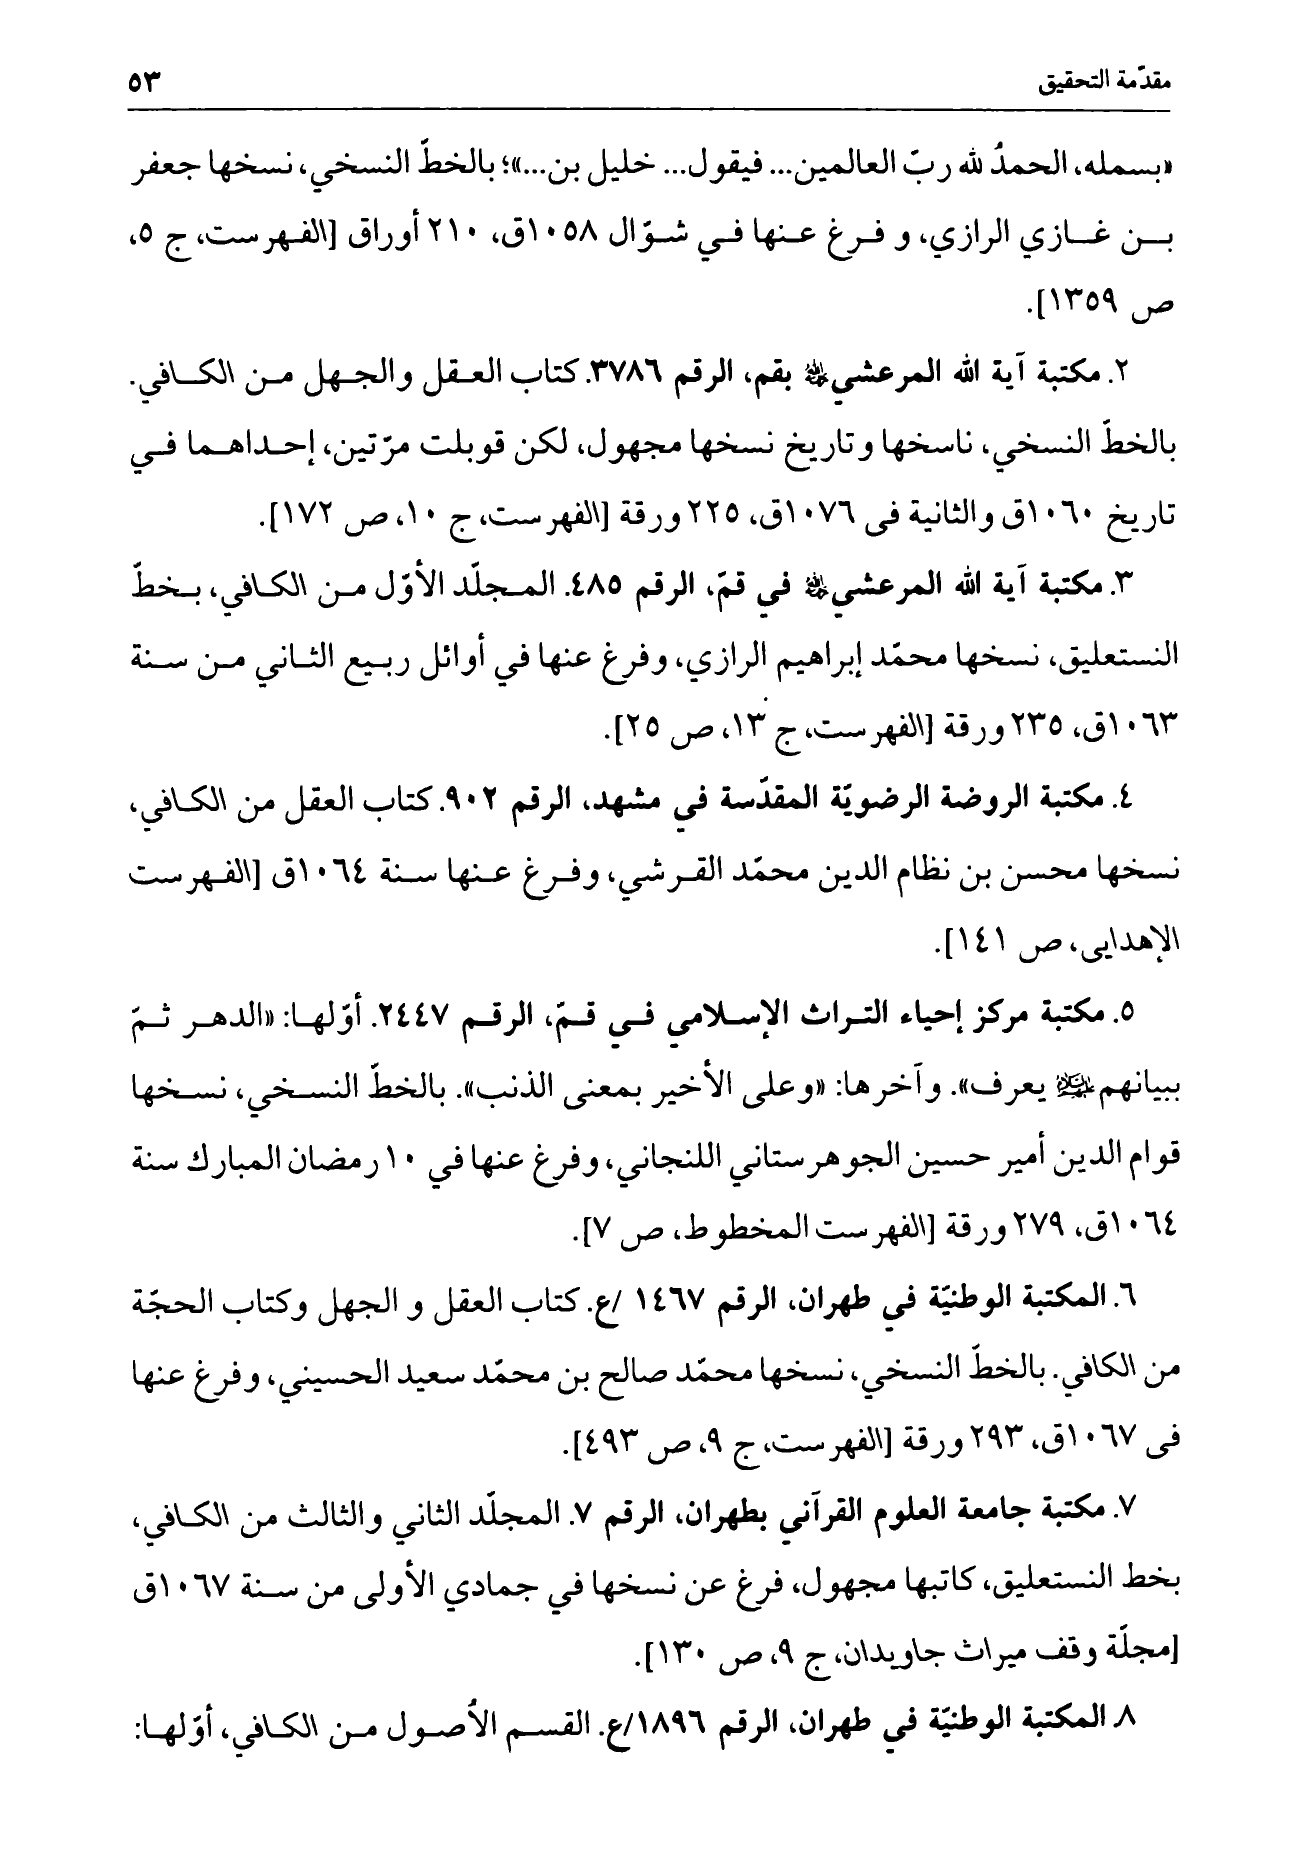 مقدّمة التحقيق ٥٣
«بسمله، الحمدُ لله ربّ العالمين... فيقول... خليل بن...»؛ بالخطّ النسخي، نسخها جعفر
بـن غـازي الرازي، و فـرغ عـنها فـي شـوّال ١٠٥٨ق، ٢١٠ أوراق [الفـهرست، ج ٥،
ص ١٣٥٩].
٢. مكتبة آية الله المرعشي بقم، الرقم ٣٧٨٦. كتاب العـقل والجـهل مـن الكـافي.
بالخطّ النسخي، ناسخها وتاريخ نسخها مجهول، لكن قوبلت مرّتين، إحـداهـما فـي
تاريخ ١٠٦٠ق والثانية فى ١٠٧٦ق، ٢٢٥ ورقة [الفهرست، ج ١٠، ص ١٧٢].
٣. مكتبة آية الله المرعشي في قمّ، الرقم ٤٨٥. المـجلّد الأوّل مـن الكـافي، بـخطّ
النستعليق، نسخها محمّد إبراهيم الرازي، وفرغ عنها في أوائل ربـيع الثـاني مـن سـنة
١٠٦٣ق، ٢٣٥ ورقة [الفهرست، ج ١٣، ص ٢٥].
٤. مكتبة الروضة الرضويّة المقدّسة في مشهد، الرقم ٩٠٢. كتاب العقل من الكافي،
نسخها محسن بن نظام الدين محمّد القـرشي، وفـرغ عـنها سـنة ١٠٦٤ق [الفـهرست
الإهدايى، ص ١٤١].
٥. مكتبة مركز إحياء التـراث الإسـلامي فـي قـمّ، الرقـم ٢٤٤٧. أوّلهـا: «الدهـر ثـمّ
ببيانهم يعرف». وآخرها: «وعلى الأخير بمعنى الذنب». بالخطّ النسـخي، نسـخها
قوام الدين أمير حسين الجوهرستاني اللنجاني، وفرغ عنها في ١٠ رمضان المبارك سنة
١٠٦٤ق، ٢٧٩ ورقة [الفهرست المخطوط، ص ٧].
٦. المكتبة الوطنيّة في طهران، الرقم ١٤٦٧ /ع. كتاب العقل و الجهل وكتاب الحجّة
من الكافي. بالخطّ النسخي، نسخها محمّد صالح بن محمّد سعيد الحسيني، وفرغ عنها
فى ١٠٦٧ق، ٢٩٣ ورقة [الفهرست، ج ٩، ص ٤٩٣].
٧. مكتبة جامعة العلوم القرآني بطهران، الرقم ٧. المجلّد الثاني والثالث من الكـافي،
بخط النستعليق، كاتبها مجهول، فرغ عن نسخها في جمادي الأولى من سـنة ١٠٦٧ق
[مجلّة وقف ميراث جاويدان، ج ٩، ص ١٣٠].
٨. المكتبة الوطنيّة في طهران، الرقم ١٨٩٦/ع. القسـم الأُصـول مـن الكـافي، أوّلهـا: